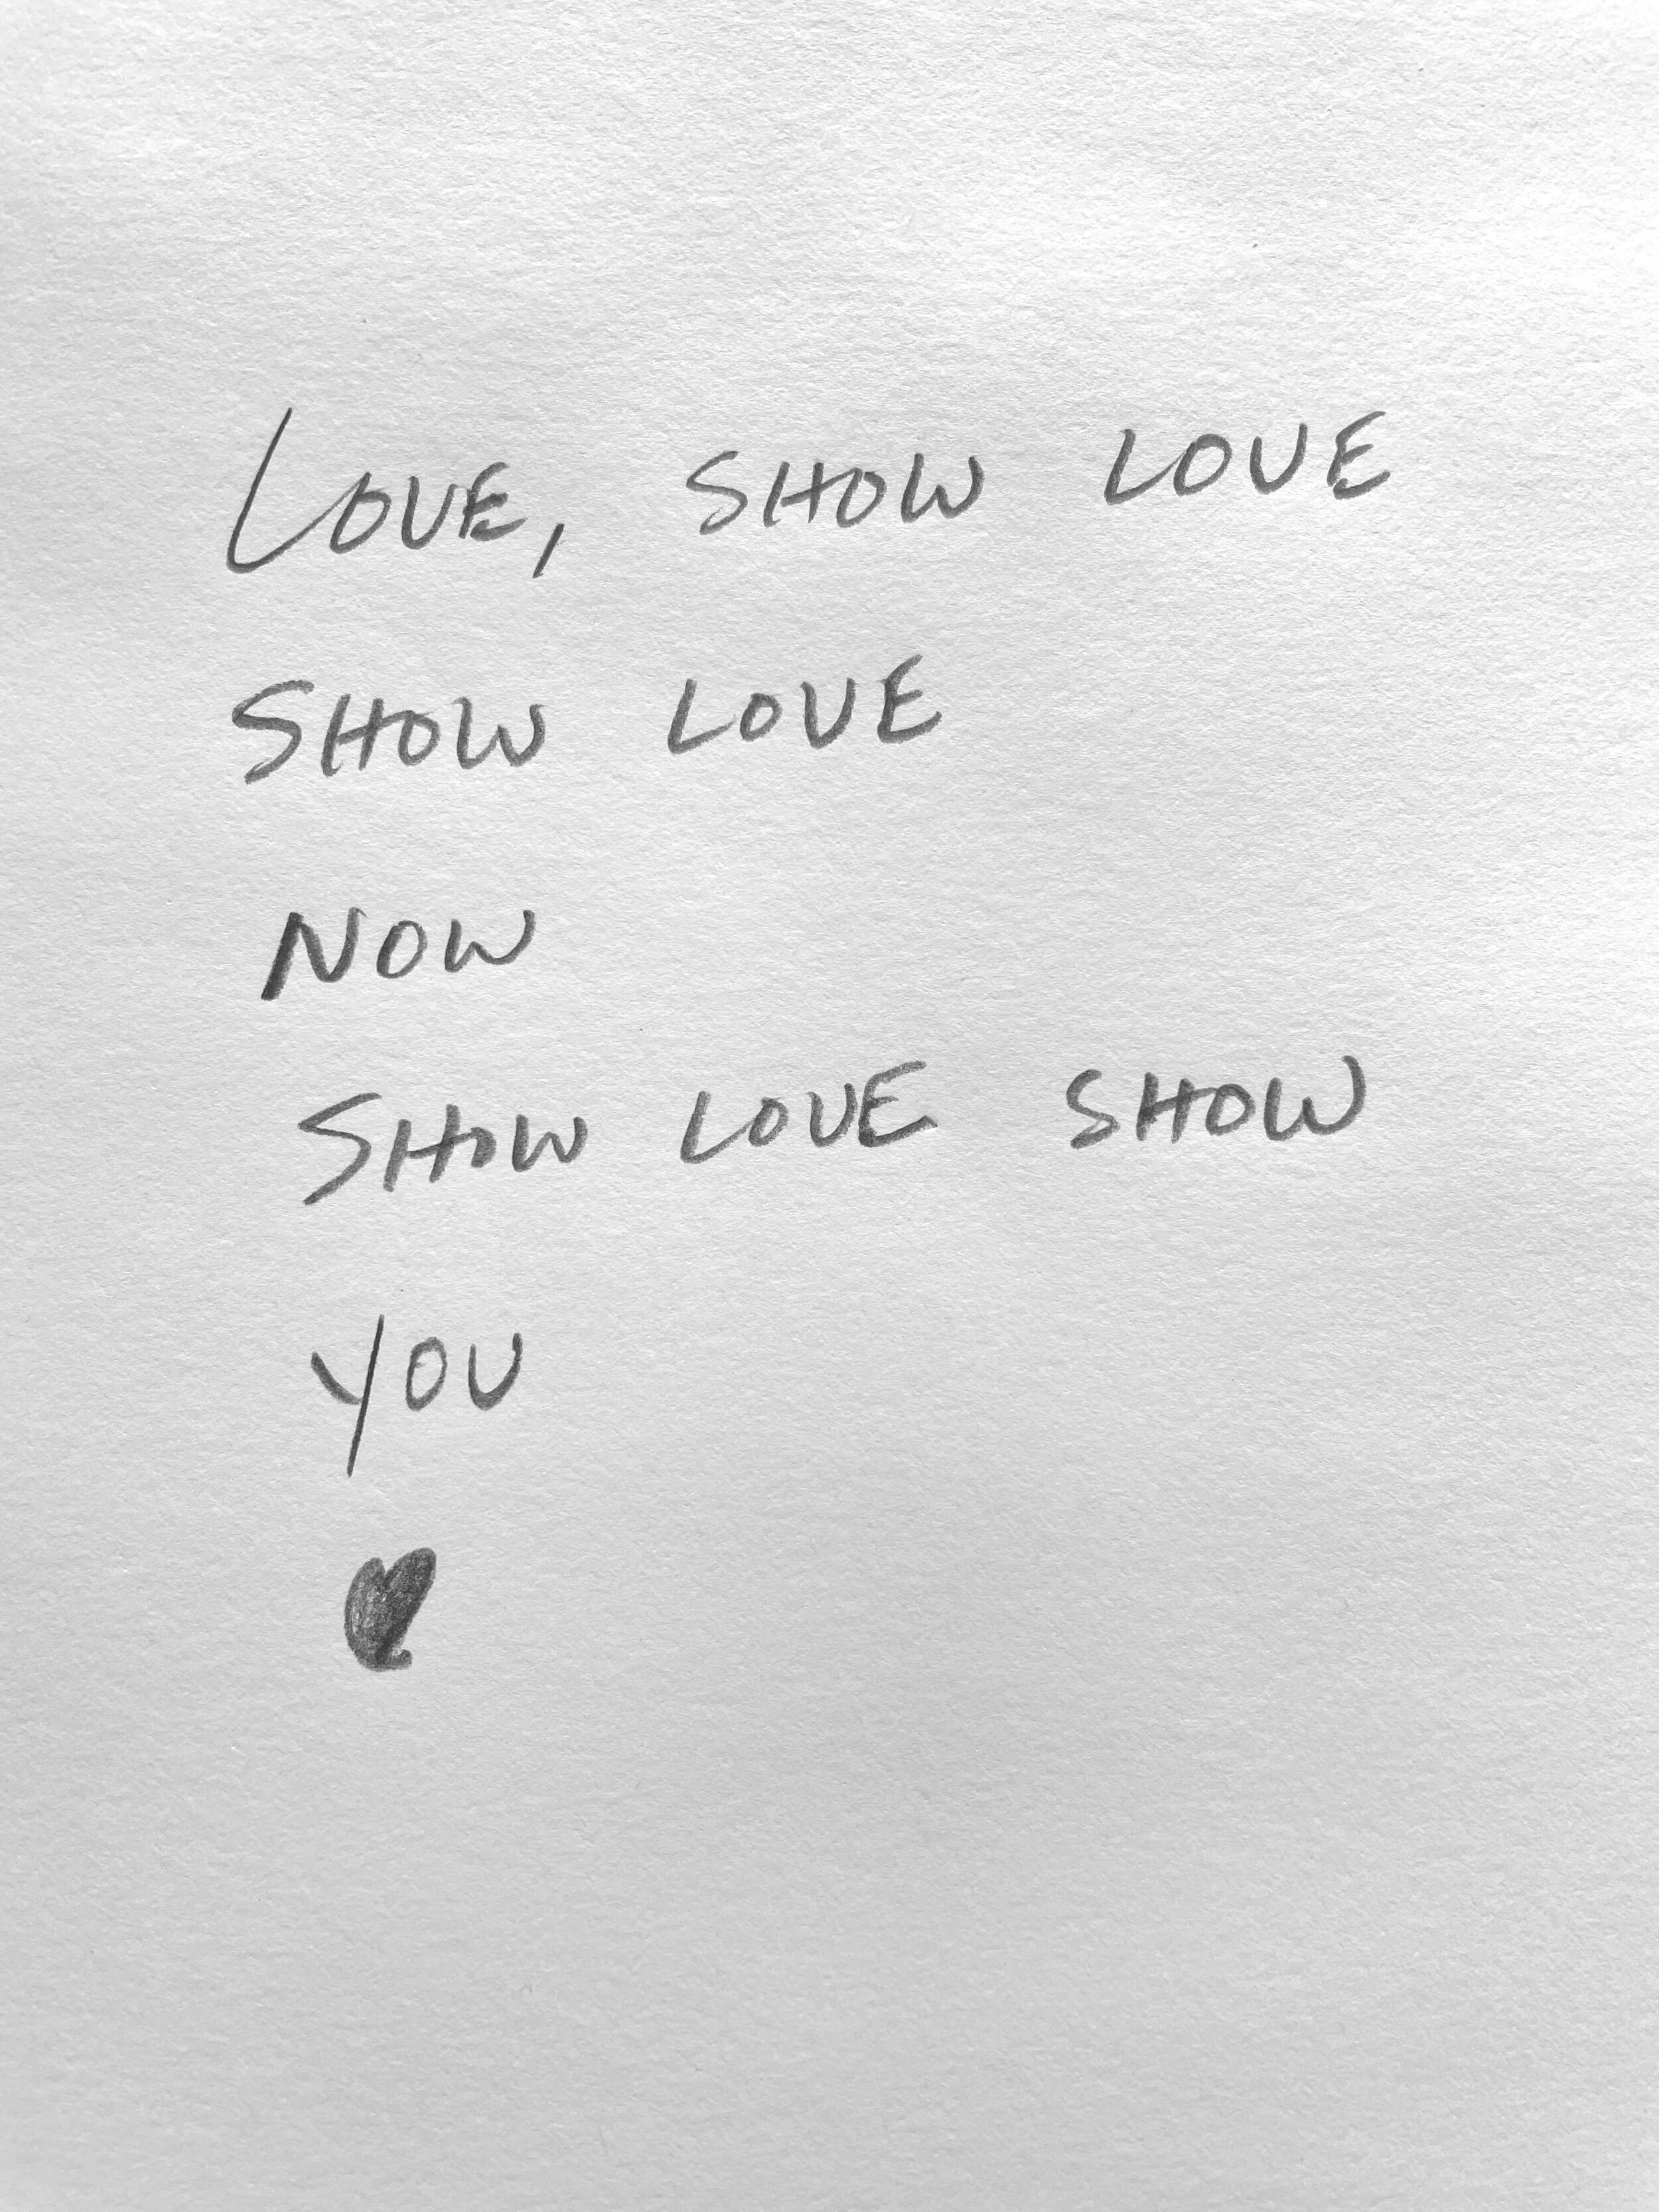 LOVE, SHOW LOVE
SHOW LOVE
NOW
SHOW LOVE SHOW
YOU